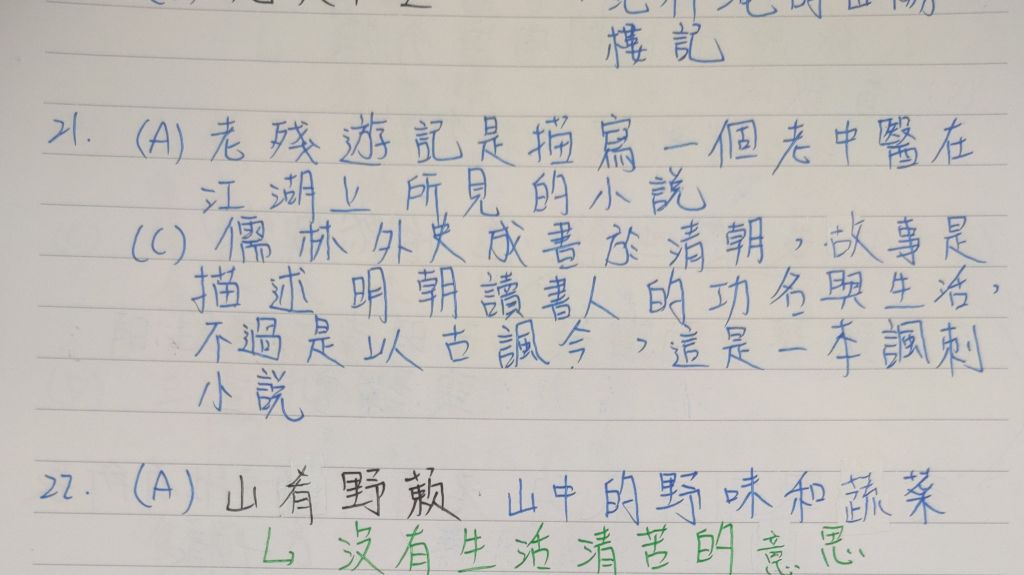 樓記
21. (A) 老殘遊記是描寫一個老中醫在
江湖上所見的小說
(C) 儒林外史成書於清朝，故事是
描述明朝讀書人的功名與生活，
不過是以古諷今，這是一本諷刺
小說
22. (A) 山肴野蔌 山中的野味和蔬菜
↳ 沒有生活清苦的意思